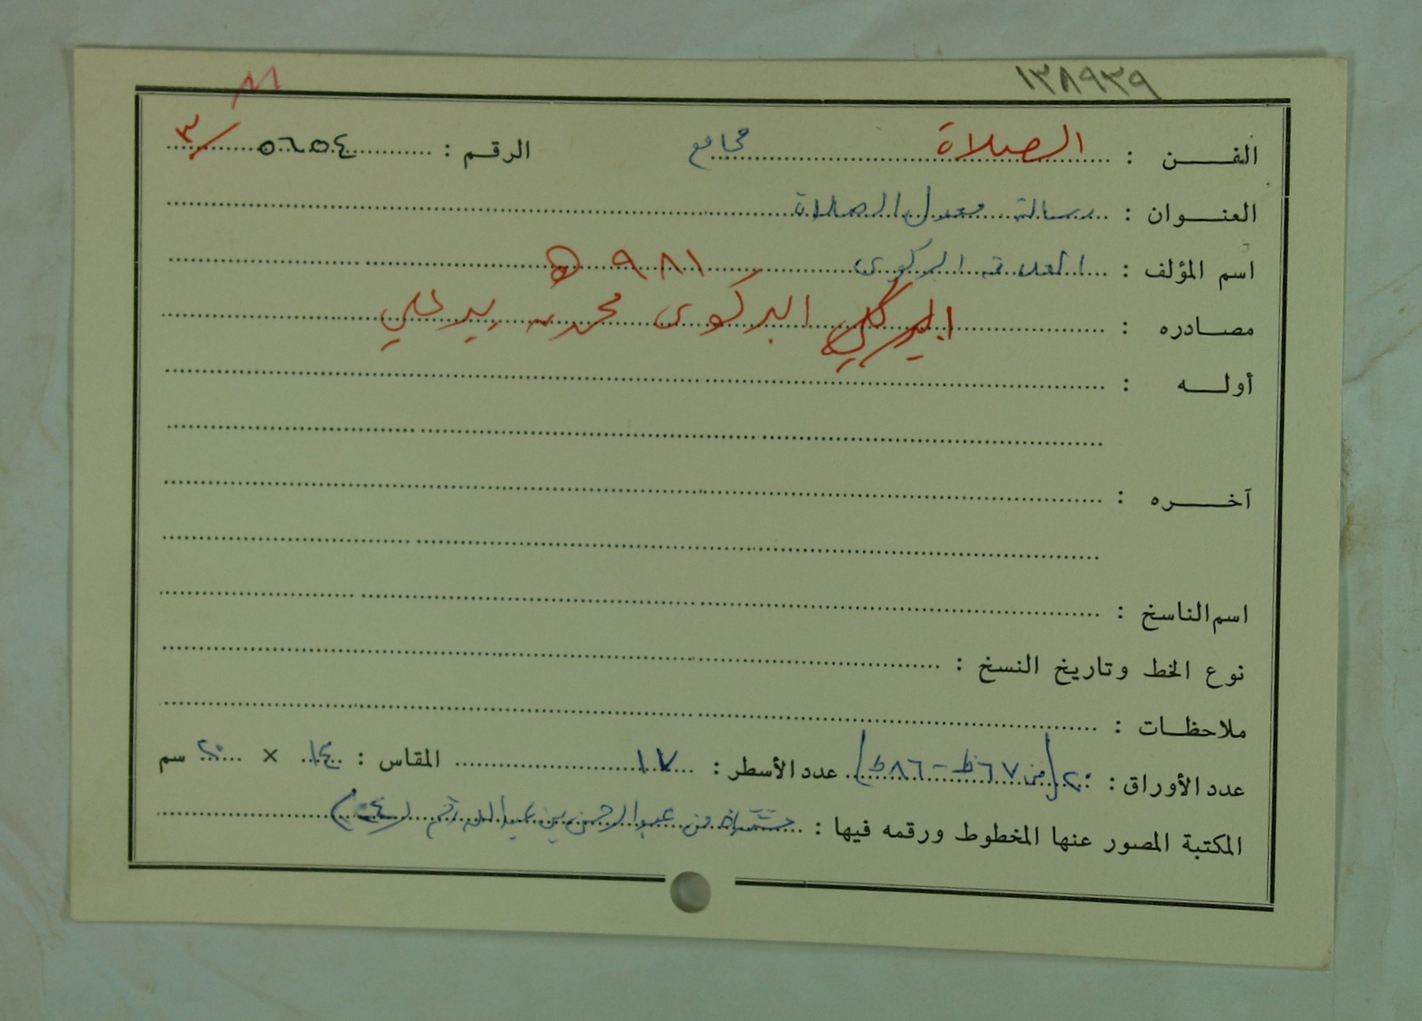 ١٣٨٩٣٩
الفن : الصلاة مجامع الرقم : ٥٦٥٤ / ٣
العنوان : رسالة معدل الصلاة
اسم المؤلف : العلامة البركوى ٩٨١ هـ
مصادره : البركلي البركوى محمد بن بير علي
أوله :
آخره :
اسم الناسخ :
نوع الخط وتاريخ النسخ :
ملاحظات :
عدد الأوراق : ٢٠ (من ٦٧ط - ٨٦ط) عدد الأسطر : ١٧ المقاس : ١٤ × ٢٠ سم
المكتبة المصور عنها المخطوط ورقمه فيها : مشتراه من عبدالرحمن بن عبدالله رقم (٤٠)